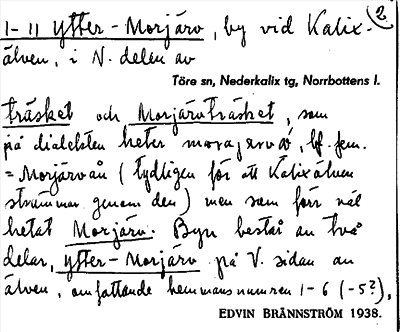 2
1-11 Ytter-Morjärv, by vid Kalix-
älven, i N. delen av
Töre sn, Nederkalix tg, Norrbottens l.
träsket och Morjärvträsket, som
på dialekten heter bf. fem.
= Morjärvån (tydligen för att Kalixälven
strömmar genom den) men som förr väl
hetat Morjärv. Byn består av två
delar, Ytter-Morjärv på V. sidan av
älven, omfattande hemmansnumren 1-6 (-5?),
EDVIN BRÄNNSTRÖM 1938.